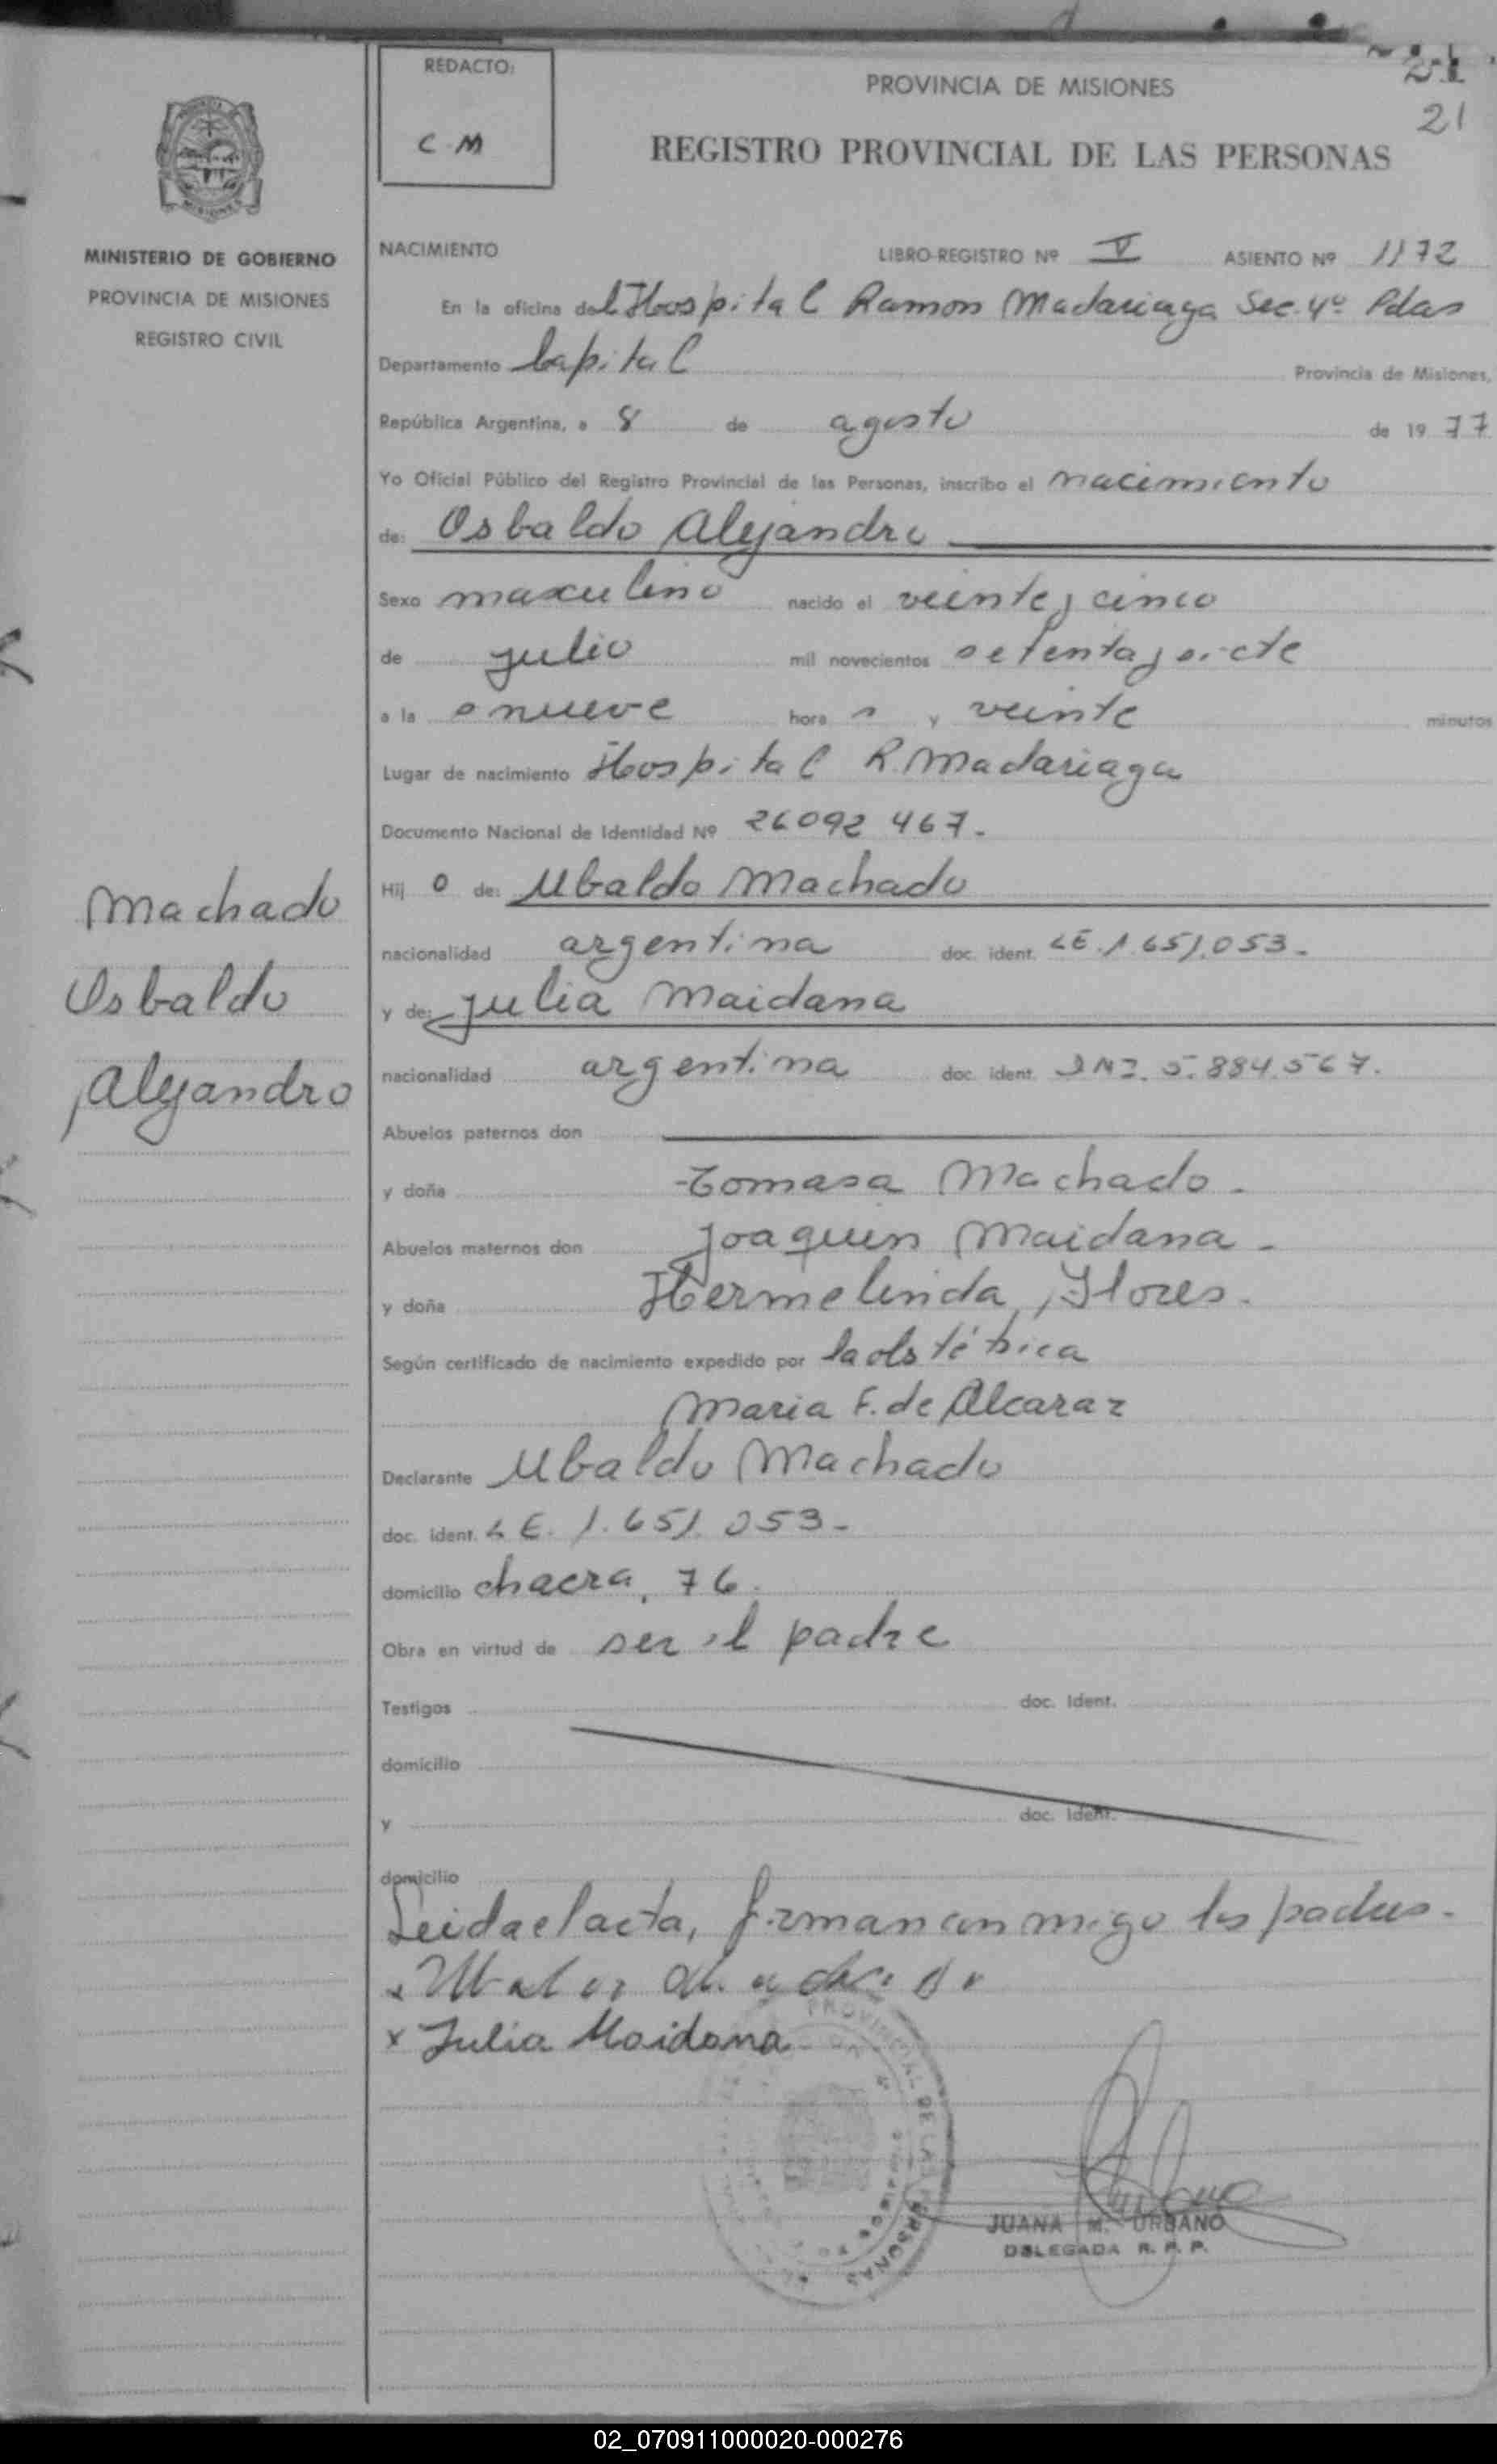 21
21
REDACTO:
C. M
PROVINCIA DE MISIONES
REGISTRO PROVINCIAL DE LAS PERSONAS
MINISTERIO DE GOBIERNO
PROVINCIA DE MISIONES
REGISTRO CIVIL
NACIMIENTO LIBRO-REGISTRO Nº V ASIENTO Nº 1172
En la oficina del Hospital Ramon Madariaga Sec. 4º Pdas
Departamento Capital Provincia de Misiones,
República Argentina, a 8 de agosto de 1977
Yo Oficial Público del Registro Provincial de las Personas, inscribo el nacimiento
de: Osbaldo Alejandro
Sexo masculino nacido el veinte y cinco
de julio mil novecientos setenta y siete
a la s nueve hora s y veinte minutos
Lugar de nacimiento Hospital R. Madariaga
Documento Nacional de Identidad Nº 26092 467.
Hij o de: Ubaldo Machado
nacionalidad argentina doc. ident. LE. 1.651.053-
y de: Julia Maidana
nacionalidad argentina doc. ident. DNI. 5.884.567.
Machado
Osbaldo
Alejandro
Abuelos paternos don
y doña Tomasa Machado.
Abuelos maternos don Joaquin Maidana-
y doña Hermelinda Flores.
Según certificado de nacimiento expedido por la obstétrica
Maria F. de Alcaraz
Declarante Ubaldo Machado
doc. ident. LE. 1.651.053-
domicilio chacra, 76.
Obra en virtud de ser el padre
Testigos doc. Ident.
domicilio
y doc. Ident.
domicilio
Leida el acta, firman conmigo los padres.
x Julia Maidana
PROVINCIAL DE LAS PERSONAS
JUANA M. URBANO
DELEGADA R. P. P.
02_070911000020-000276